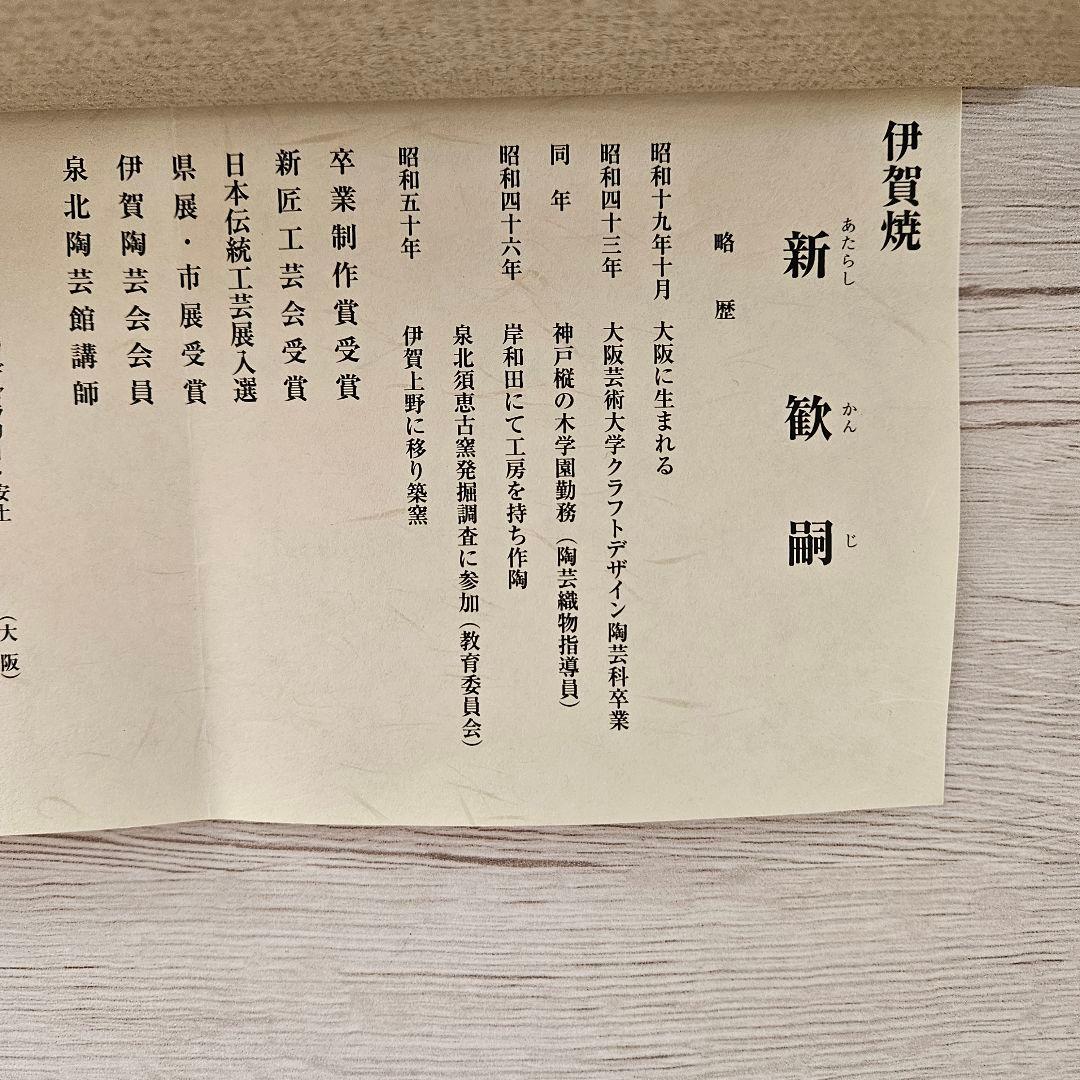 伊賀焼
新 歓 嗣
あたらし かん じ
略 歴
昭和十九年十月 大阪に生まれる
昭和四十三年 大阪芸術大学クラフトデザイン陶芸科卒業
同 年 神戸樅の木学園勤務（陶芸織物指導員）
昭和四十六年 岸和田にて工房を持ち作陶
泉北須恵古窯発掘調査に参加（教育委員会）
昭和五十年 伊賀上野に移り築窯
卒業制作賞受賞
新匠工芸会受賞
日本伝統工芸展入選
県展・市展受賞
伊賀陶芸会会員
泉北陶芸館講師
（大阪）